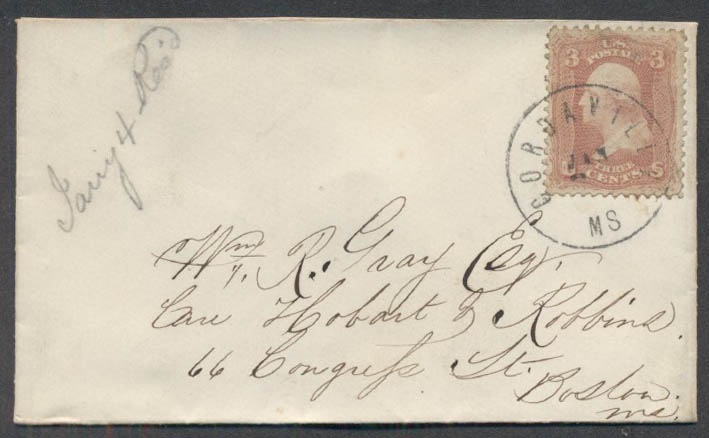 3 U.S. 3
POSTAGE
THREE
U CENTS S
CORDAVILLE
JAN
MS
Wm. R. Gray Esq.
Care Hobart & Robbins.
66 Congreſs St.
Boston.
Ms.